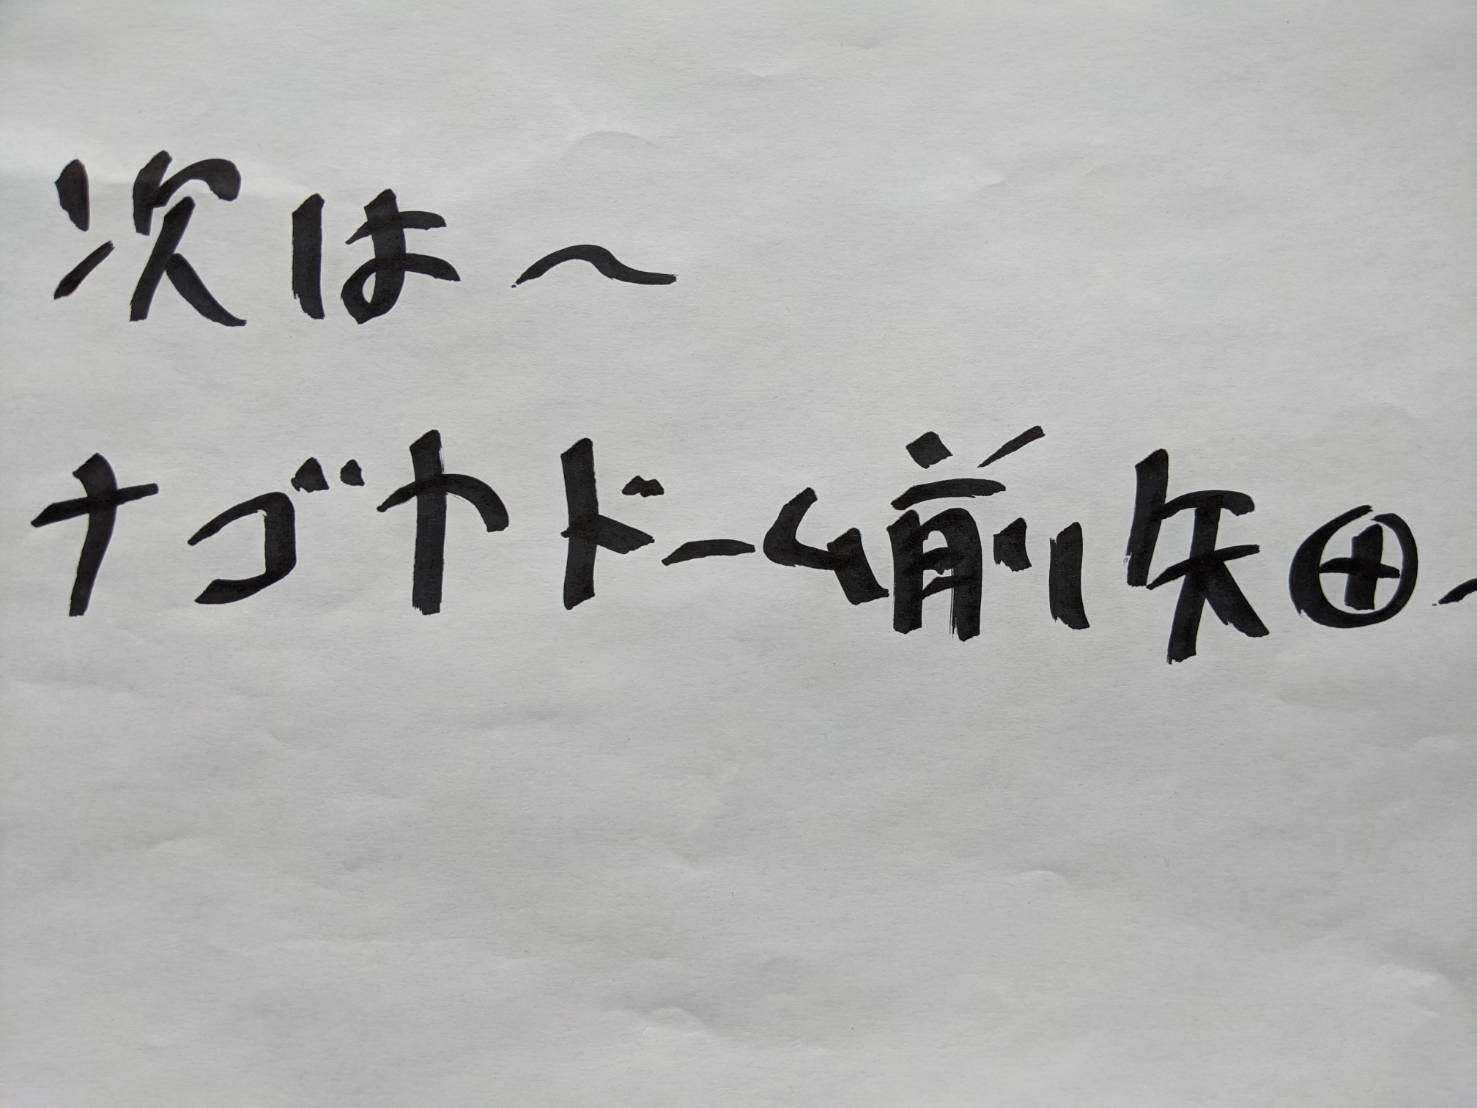 次は〜
ナゴヤドーム前矢田〜